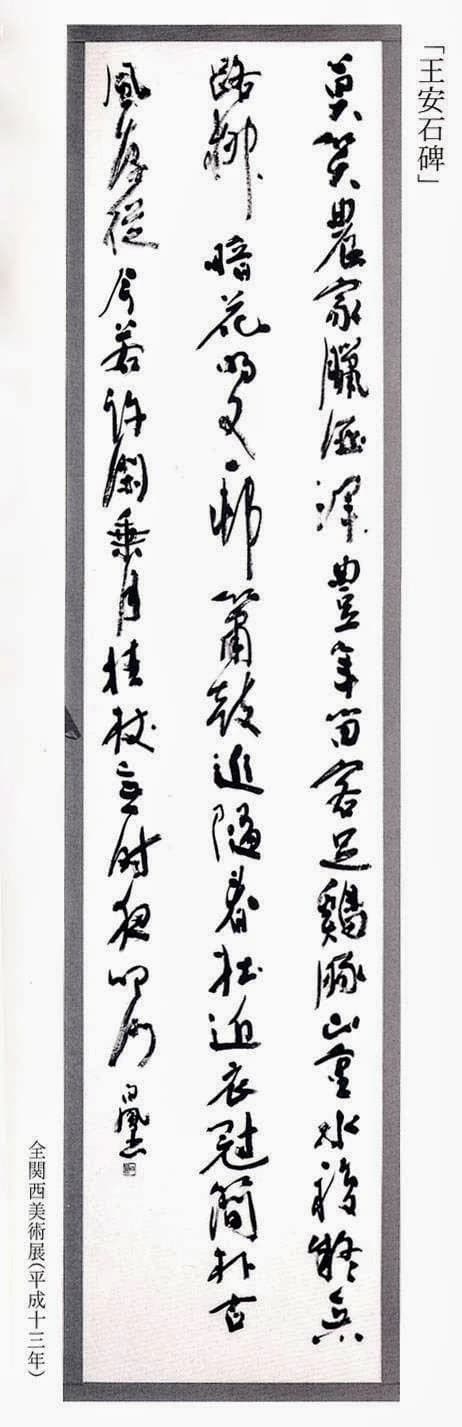 「王安石碑」
莫笑農家臘酒渾豊年留客足鶏豚山重水複疑無
路柳暗花明又一邨簫鼓追随春社近衣冠簡朴古
風存従今若許閑乗月拄杖無時夜叩門 白鳳
全関西美術展(平成十三年)